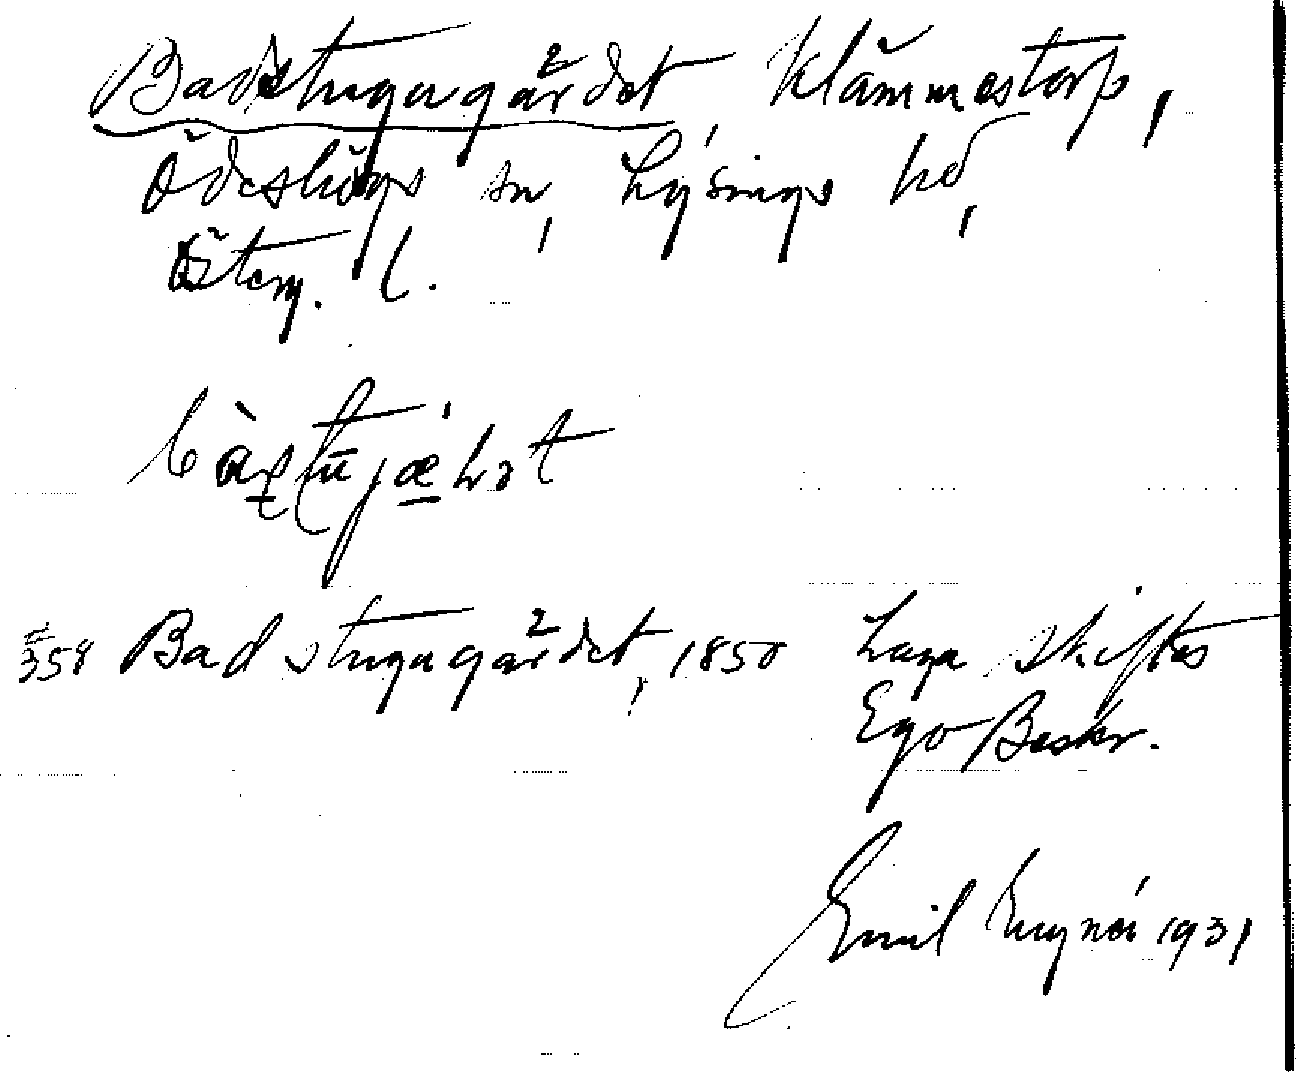 Badstugugärdet, Klämmestorp,
Ödeshögs sn, Lysings hd,
Österg. l.
358 Badstugugärdet, 1850 Laga skiftes
Ego Beskr.
Emil 1931